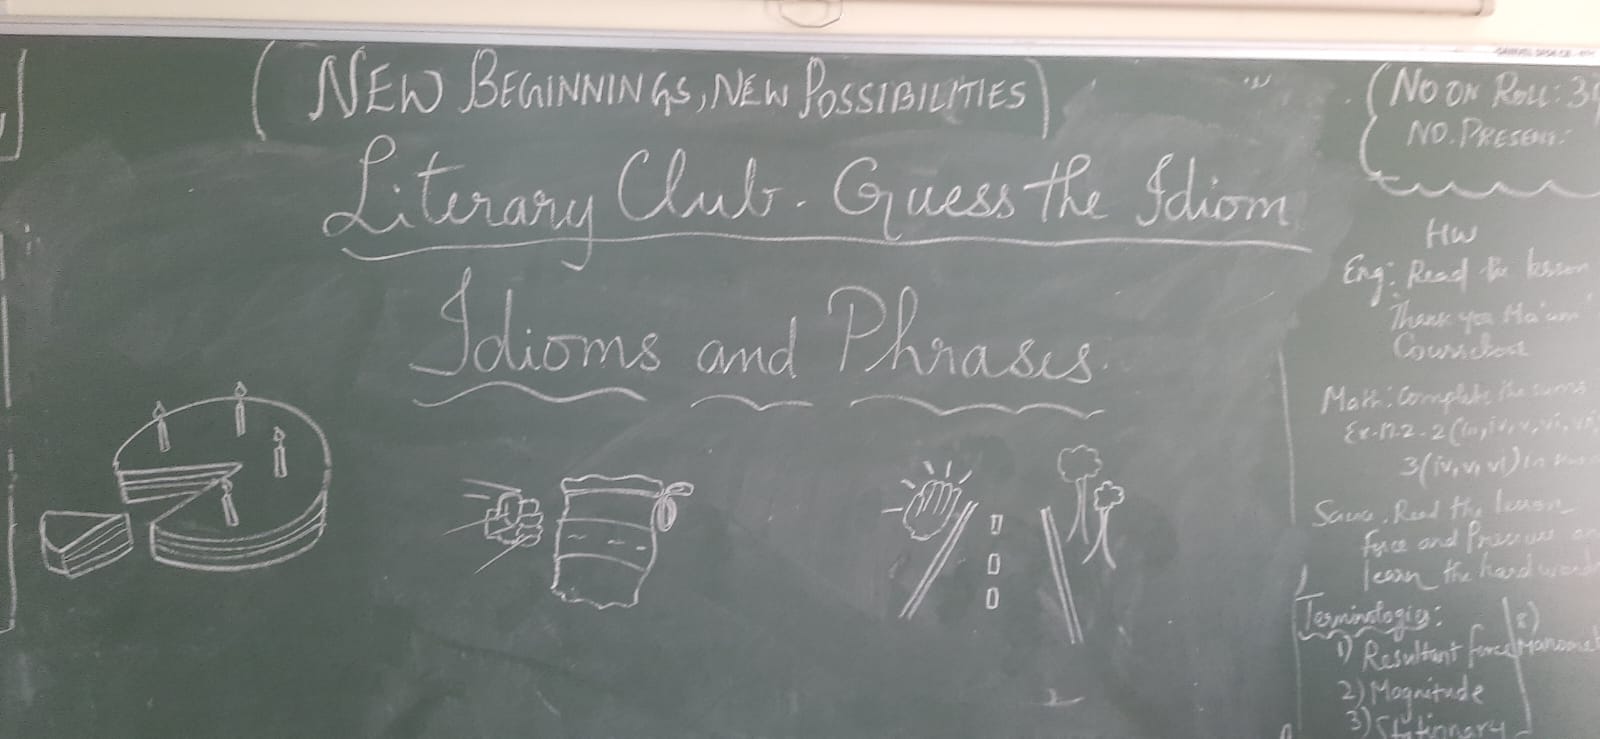 (NEW BEGINNINGS, NEW POSSIBILITIES)
Literary Club. Guess the Idiom
Idioms and Phrases.
(NO ON ROLL: 3
NO. PRESENT:
HW
Eng: Read the lesson
Thank you Ma'am
Math: Complete the sums
3(iv, v, vi) in
Read the lesson
Force and Pressure
learn the hard words
Terminologies:
1) Resultant force
2) Magnitude
3) Stationary
8)